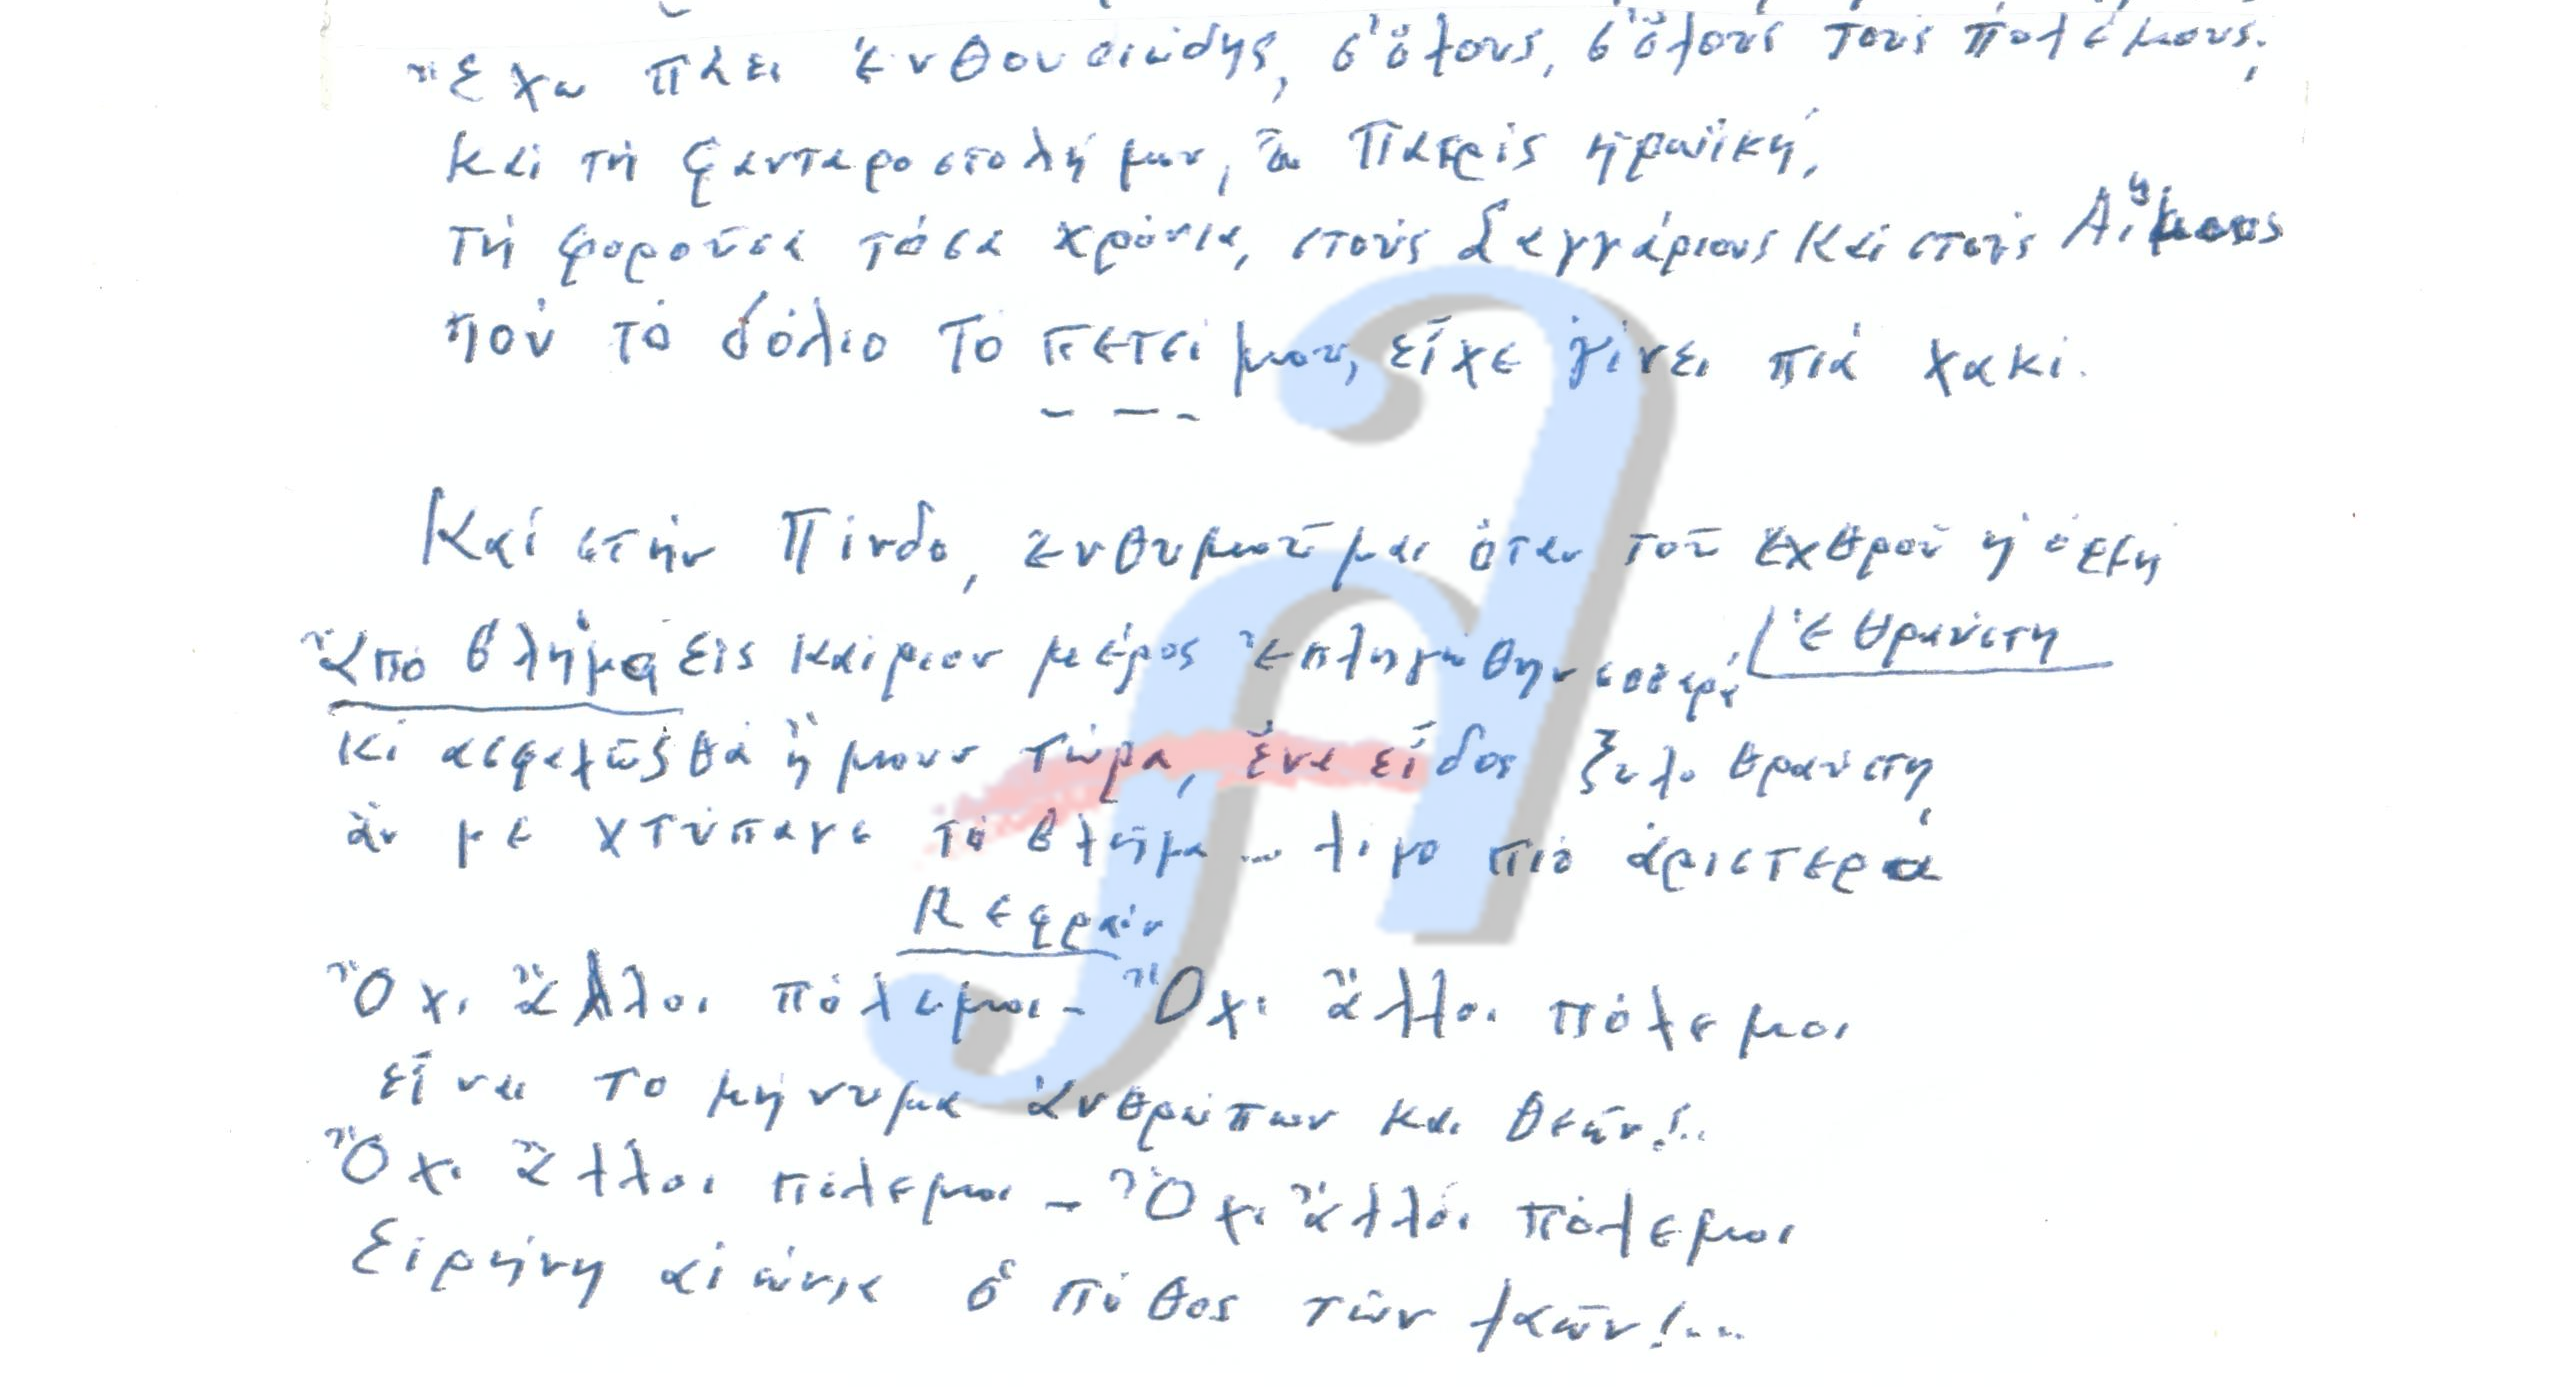 Ἔχω πάει ἐνθουσιώδης, σ' ὅλους, σ' ὅλους τούς πολέμους,
καί τή φανταροστολή μου, ὦ Πατρίς ἡρωϊκή,
τή φοροῦσα τόσα χρόνια, στούς Σαγγάριους καί στούς Αἵμους
πού τό δόλιο τό πετσί μου, εἶχε γίνει πιά χακί.
Καί στήν Πίνδο, ἐνθυμοῦμαι ὅταν τοῦ ἐχθροῦ ἡ ὁρμή
ἐθραύστη
Ἀπό βλῆμα εἰς καίριον μέρος ἐπληγώθην σοβαρά
κι ασφαλῶς θά ἤμουν τώρα, ἕνα εἶδος ξυλοθραύστη,
ἄν μέ χτύπαγε τό βλῆμα... λιγο πιό ἀριστερά
Ρεφραίν
Ὄχι ἄλλοι πόλεμοι - Ὄχι ἄλλοι πόλεμοι
εἶναι το μήνυμα ἀνθρώπων και θεῶν!..
Ὄχι ἄλλοι πόλεμοι - Ὄχι ἄλλοι πόλεμοι
Εἰρήνη αἰώνια ὁ πόθος τῶν λαῶν!...